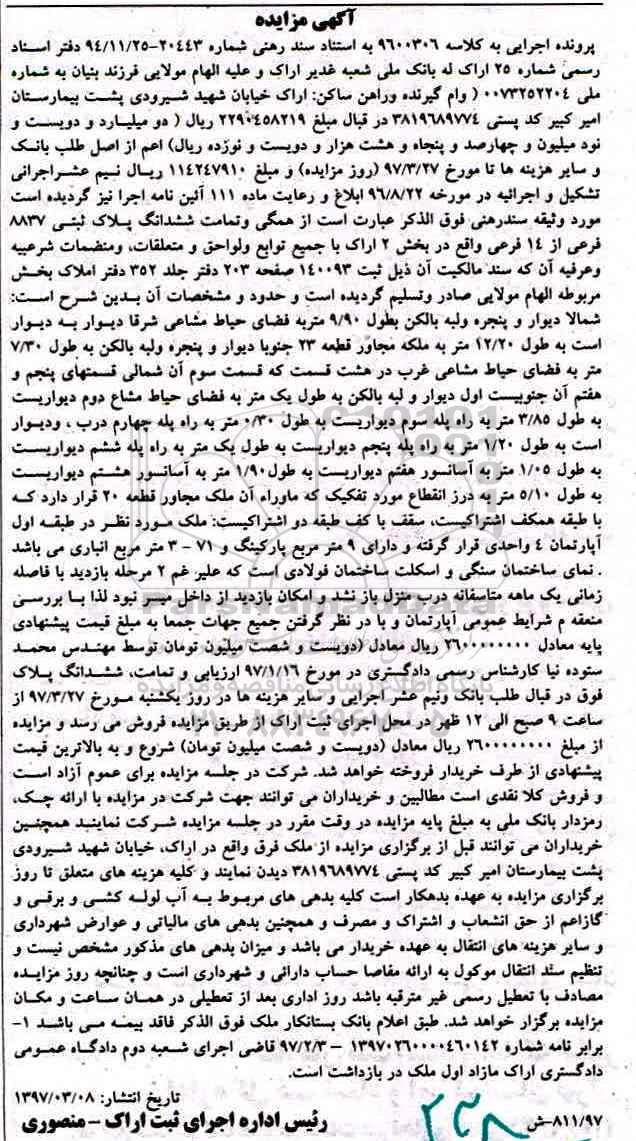 آگهی مزایده
پرونده اجرایی به کلاسه ۹۶۰۰۳۰۶ به استناد سند رهنی شماره ۲۰۴۴۳-۹۴/۱۱/۲۵ دفتر اسناد
رسمی شماره ۲۵ اراک له بانک ملی شعبه غدیر اراک و علیه الهام مولایی فرزند بنیان به شماره
ملی ۰۰۷۳۲۵۲۲۰۴ ( وام گیرنده وراهن ساکن: اراک خیابان شهید شیرودی پشت بیمارستان
امیر کبیر کد پستی ۳۸۱۹۶۸۹۷۷۴ در قبال مبلغ ۲۲۹۰۴۵۸۲۱۹ ریال ( دو میلیارد و دویست و
نود میلیون و چهارصد و پنجاه و هشت هزار و دویست و نوزده ریال) اعم از اصل طلب بانک
و سایر هزینه ها تا مورخ ۹۷/۳/۲۷ (روز مزایده) و مبلغ ۱۱۴۲۴۷۹۱۰ ریال نیم عشراجرائی
تشکیل و اجرائیه در مورخه ۹۶/۸/۲۲ ابلاغ و رعایت ماده ۱۱۱ آئین نامه اجرا نیز گردیده است
مورد وثیقه سندرهنی فوق الذکر عبارت است از همگی وتمامت ششدانگ پلاک ثبتی ۸۸۳۷
فرعی از ۱۴ فرعی واقع در بخش ۲ اراک با جمیع توابع ولواحق و متعلقات، ومنضمات شرعییه
وعرفیه آن که سند مالکیت آن ذیل ثبت ۱۴۰۰۹۳ صفحه ۲۰۳ دفتر جلد ۳۵۲ دفتر املاک بخش
مربوطه الهام مولایی صادر وتسلیم گردیده است و حدود و مشخصات آن بدین شرح است:
شمالا دیوار و پنجره ولبه بالکن بطول ۹/۹۰ متربه فضای حیاط مشاعی شرقا دیوار به دیوار
است به طول ۱۲/۲۰ متر به ملکه مجاور قطعه ۲۳ جنوبا دیوار و پنجره ولبه بالکن به طول ۷/۳۰
متر به فضای حیاط مشاعی غرب در هشت قسمت که قسمت سوم آن شمالی قسمتهای پنجم و
هفتم آن جنوبیست اول دیوار و لبه بالکن به طول یک متر به فضای حیاط مشاع دوم دیواریست
به طول ۳/۸۵ متر به راه پله سوم دیواریست به طول ۰/۳۰ متر به راه پله چهارم درب ، ودیوار
است به طول ۱/۲۰ متر به راه پله پنجم دیواریست به طول یک متر به راه پله ششم دیواریست
به طول ۱/۰۵ متر به آسانسور هفتم دیواریست به طول۱/۹۰ متر به آسانسور هشتم دیواریست
به طول ۵/۱۰ متر به درز انقطاع مورد تفکیک که ماوراء آن ملک مجاور قطعه ۲۰ قرار دارد که
با طبقه همکف اشتراکیست، سقف با کف طبقه دو اشتراکیست: ملک مورد نظر در طبقه اول
آپارتمان ٤ واحدی قرار گرفته و دارای ۹ متر مربع پارکینگ و ۷۱ - ۳ متر مربع انباری می باشد
. نمای ساختمان سنگی و اسکلت ساختمان فولادی است که علیر غم ۲ مرحله بازدید با فاصله
زمانی یک ماهه متاسفانه درب منزل باز نشد و امکان بازدید از داخل میسر نبود لذا با بررسی
منعقه م شرایط عمومی آپارتمان و با در نظر گرفتن جمیع جهات جمعا به مبلغ قیمت پیشنهادی
پایه معادل ۲۶۰۰۰۰۰۰۰۰ ریال معادل (دویست و شصت میلیون تومان توسط مهندس محمد
ستوده نیا کارشناس رسمی دادگستری در مورخ ۹۷/۱/۱۶ ارزیابی و تمامت، ششدانگ پلاک
فوق در قبال طلب بانک ونیم عشر اجرایی و سایر هزینه ها در روز یکشنبه مورخ ۹۷/۳/۲۷ از
ساعت ۹ صبح الی ۱۲ ظهر در محل اجرای ثبت اراک از طریق مزایده فروش می رسد و مزایده
از مبلغ ۲۶۰۰۰۰۰۰۰۰ ریال معادل (دویست و شصت میلیون تومان) شروع و به بالاترین قیمت
پیشنهادی از طرف خریدار فروخته خواهد شد. شرکت در جلسه مزایده برای عموم آزاد است
و فروش کلا نقدی است مطالبین و خریداران می توانند جهت شرکت در مزایده با ارائه چک،
رمزدار بانک ملی به مبلغ پایه مزایده در وقت مقرر در جلسه مزایده شرکت نمایند همچنین
خریداران می توانند قبل از برگزاری مزایده از ملک فرق واقع در اراک، خیابان شهید شیرودی
پشت بیمارستان امیر کبیر کد پستی ۳۸۱۹۶۸۹۷۷۴ دیدن نمایند و کلیه هزینه های متعلق تا روز
برگزاری مزایده به عهده بدهکار است کلیه بدهی های مربوط به آب لوله کشی و برقی و
گازاعم از حق انشعاب و اشتراک و مصرف و همچنین بدهی های مالیاتی و عوارض شهرداری
و سایر هزینه های انتقال به عهده خریدار می باشد و میزان بدهی های مذکور مشخص نیست و
تنظیم سند انتقال موکول به ارائه مقاصا حساب دارائی و شهرداری است و چنانچه روز مزایده
مصادف با تعطیل رسمی غیر مترقبه باشد روز اداری بعد از تعطیلی در همان ساعت و مکان
مزایده برگزار خواهد شد. طبق اعلام بانک بستانکار ملک فوق الذکر فاقد بیمه می باشد ۱-
برابر نامه شماره ۱۳۹۷۰۲۶۰۰۰۰۴۶۰۱۴۲ – ۹۷/۲/۳ قاضی اجرای شعبه دوم دادگاه عمومی
دادگستری اراک مازاد اول ملک در بازداشت است.
تاریخ انتشار: ۱۳۹۷/۰۳/۰۸
رئیس اداره اجرای ثبت اراک - منصوری
۸۱۱/۹۷-ش
ParsNamadData